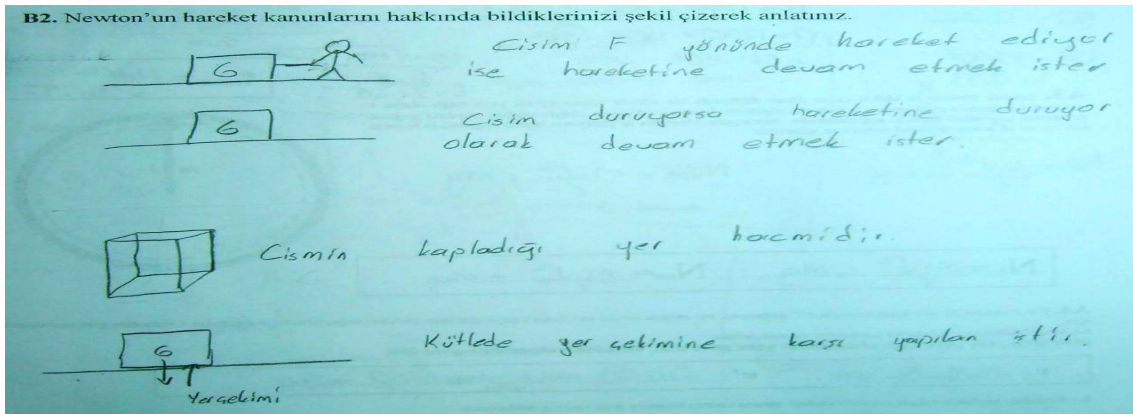 B2. Newton'un hareket kanunlarını hakkında bildiklerinizi şekil çizerek anlatınız.
G
Cisim F yönünde hareket ediyor
ise hareketine devam etmek ister
G
Cisim duruyorsa hareketine duruyor
olarak devam etmek ister.
Cismin kapladığı yer hacmidir.
G
Kütlede yer çekimine karşı yapılan iştir.
Yerçekimi